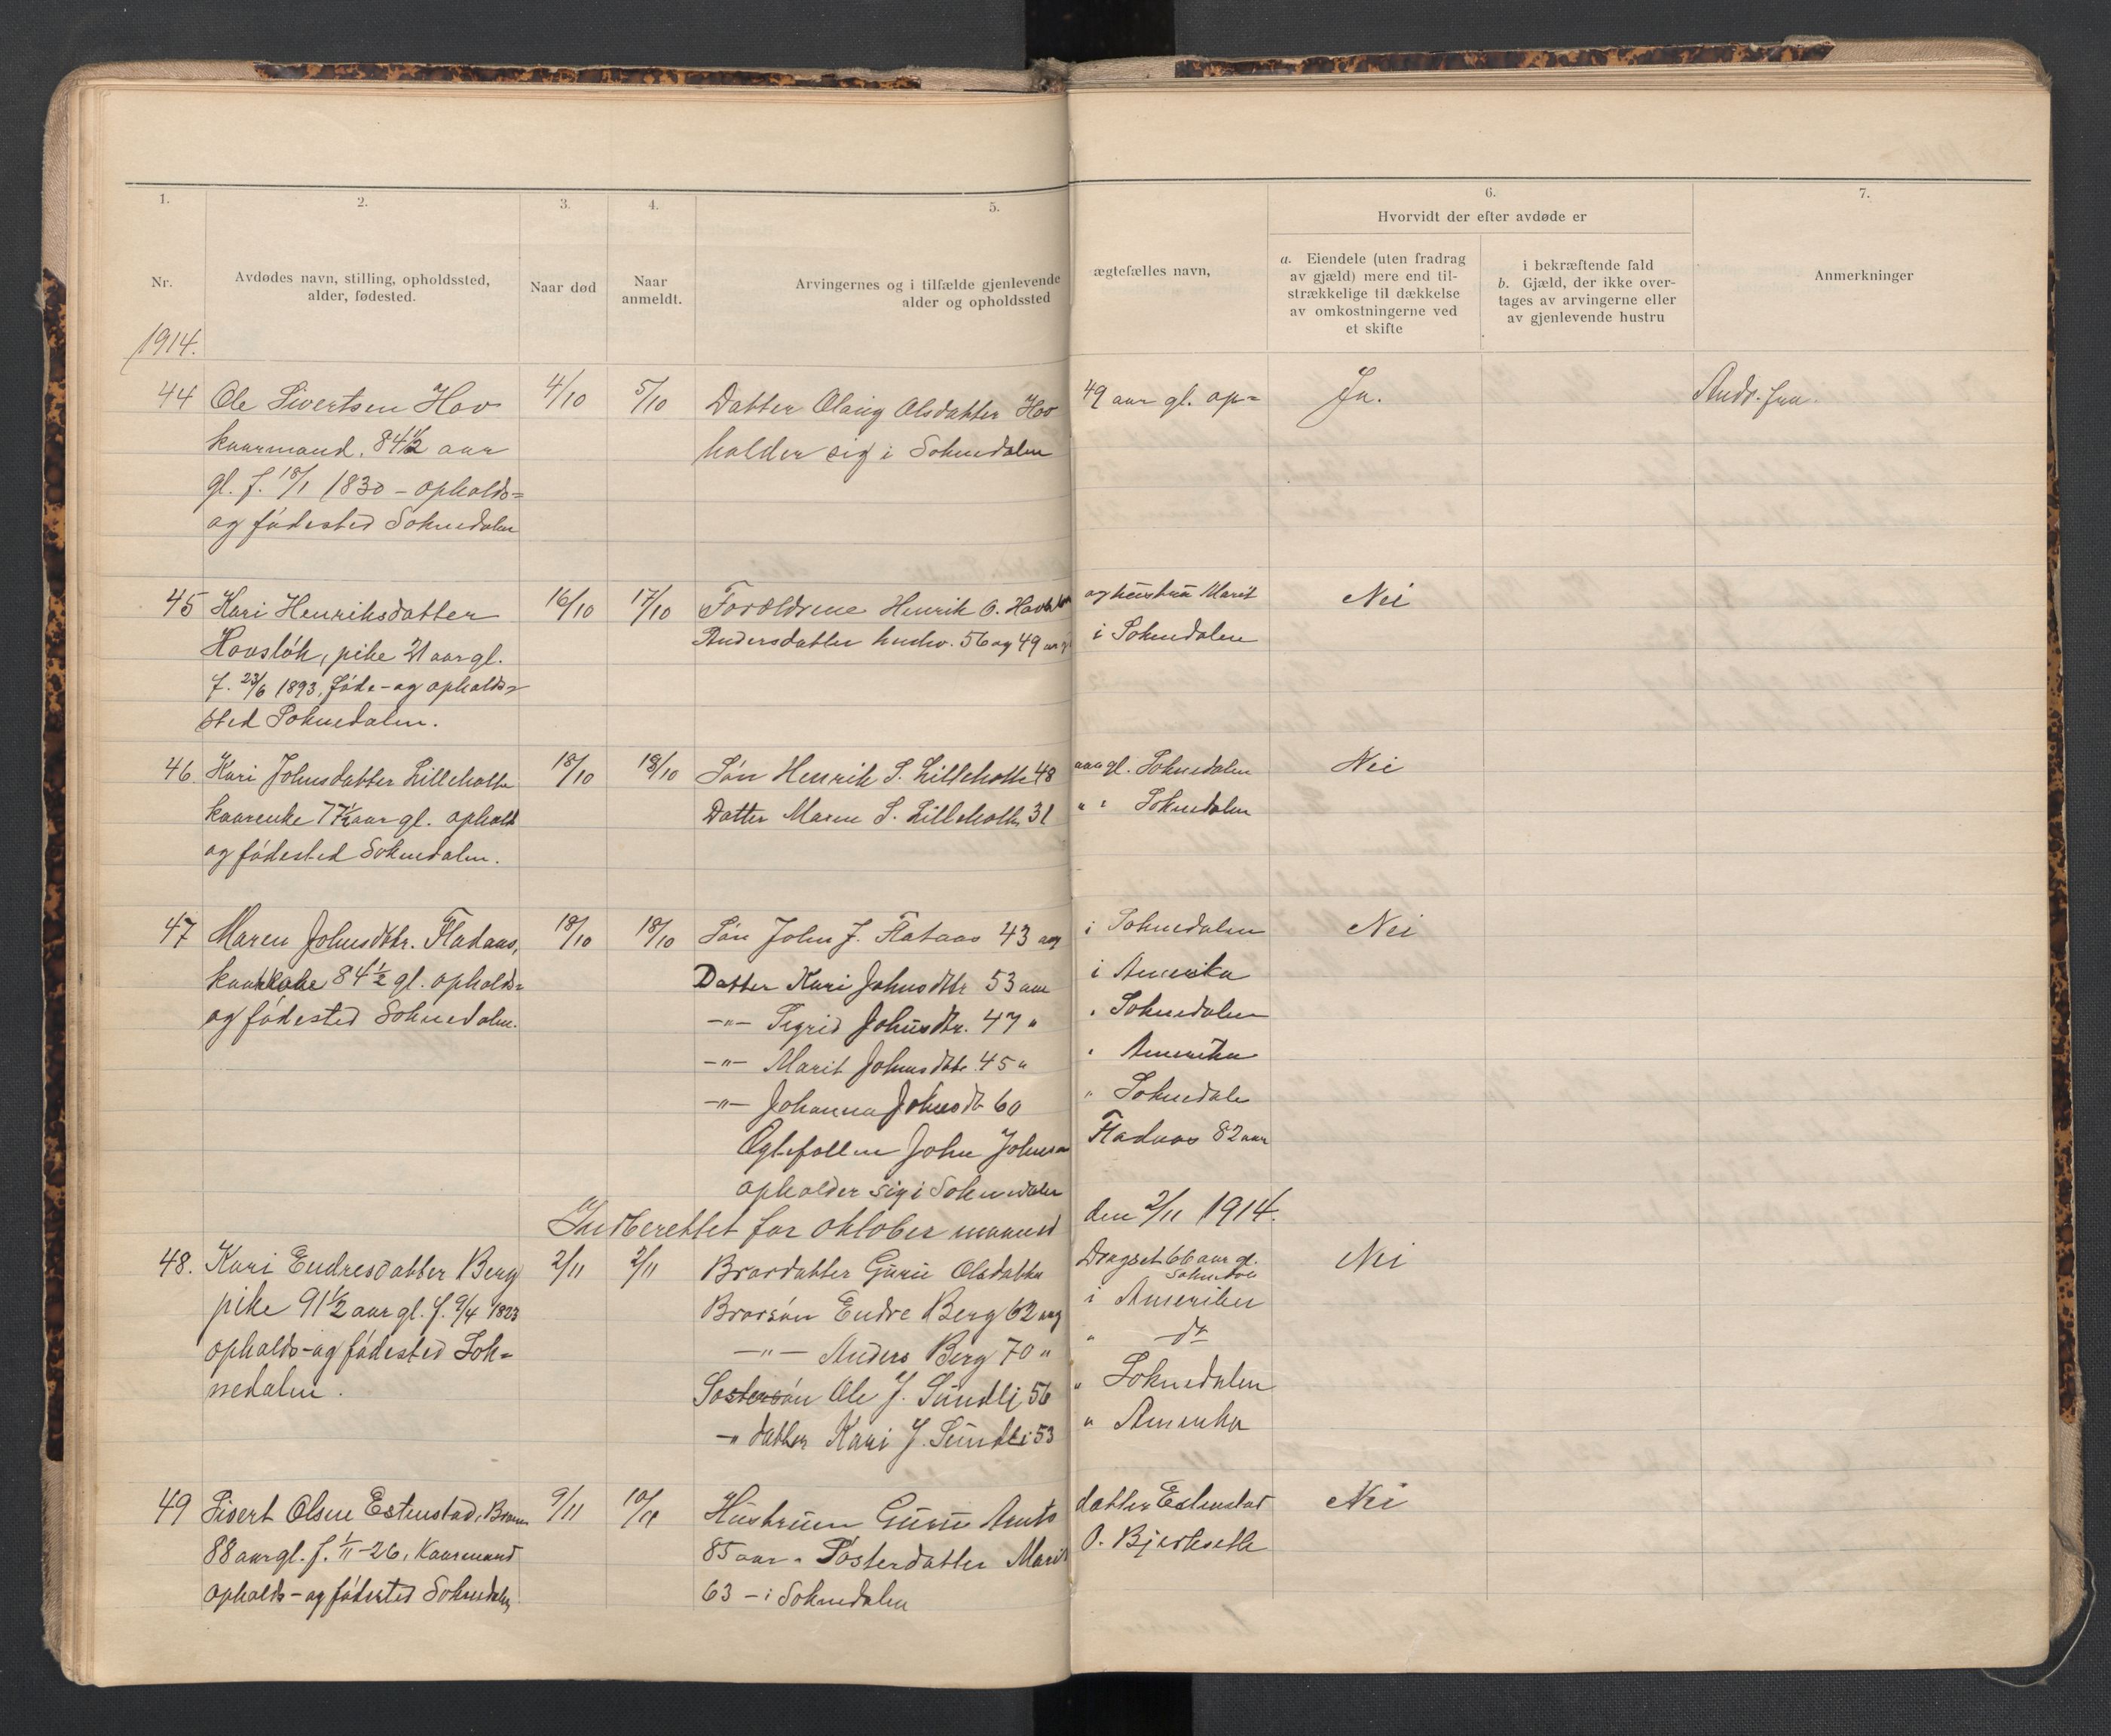 1.
2.
3.
4.
5.
6.
7.
Nr.
Avdødes navn, stilling, opholdssted,
alder, fødested.
Naar død
Naar
anmeldt.
Arvingernes og i tilfælde gjenlevende
alder og opholdssted
ægtefælles navn,
Hvorvidt der efter avdøde er
a. Eiendele (uten fradrag
av gjæld) mere end til-
strækkelige til dækkelse
av omkostningerne ved
et skifte
i bekræftende fald
b. Gjæld, der ikke over-
tages av arvingerne eller
av gjenlevende hustru
Anmerkninger
1914.
44 Ole Sivertsen Hov 4/10 5/10 Datter Olaug Olsdatter Hov 49 aar gl. op= Ja.
kaarmand. 84 1/2 aar holder sig i Soknedalen
gl. f. 18/1 1830 - opholds=
og fødested Soknedalen
45 Kari Henriksdatter 16/10 17/10 Forældrene Henrik O. og hustru Marit Nei
Hovsløk, pike 21 aar gl. Andersdatter henhv. 56 og 49 i Soknedalen
f. 23/6 1893, føde- og opholds=
sted Soknedalen.
46. Kari Johnsdatter Lilleholte 18/10 18/10 Søn Henrik S. Lilleholte 48 aar gl. Soknedalen Nei
kaarenke 77 1/2 aar gl. ophold Datter Maren S. Lilleholte 31 " " Soknedalen
og fødested Soknedalen.
47 Maren Johnsdtr. Fladaas, 18/10 18/10 Søn John J. Flataas 43 i Soknedalen Nei
84 1/2 gl. opholds= Datter Kari Johnsdtr 53 aar i Amerika
og fødested Soknedalen. -"- Sigrid Johnsdtr. 47 " " Soknedalen
-"- Marit Johnsdtr. 45 " " Amerika
-"- Johanna Johnsdt 60 " Soknedale
Ægtefællen John Johnsen Fladaas 82 aar
opholder sig i Soknedalen
Indberettet for oktober maaned den 2/11 1914.
48. Kari Endresdatter Berg 2/11 2/11 Brordatter Guru Olsdatter Dragset 66 aar gl. Nei
Soknedal
pike 91 1/2 aar gl. f. 9/4 1823 Brorsøn Endre Berg 62 i Amerika
opholds- og fødested Sok= -"- Anders Berg 70 " " do
nedalen. Søstersøn Ole J. Sundli 56 " Soknedalen
-" datter Kari J. Sundli 53 " Amerika
49 Sivert Olsen Estenstad, 9/11 10/11 Hustruen Guru Arnts datter Estenstad Nei
88 aar gl. f. 1/11-26, Kaarmand 85 aar. Søsterdatter Marit O. Bjerkseth
opholds- og fødested Soknedalen 63 - i Soknedalen